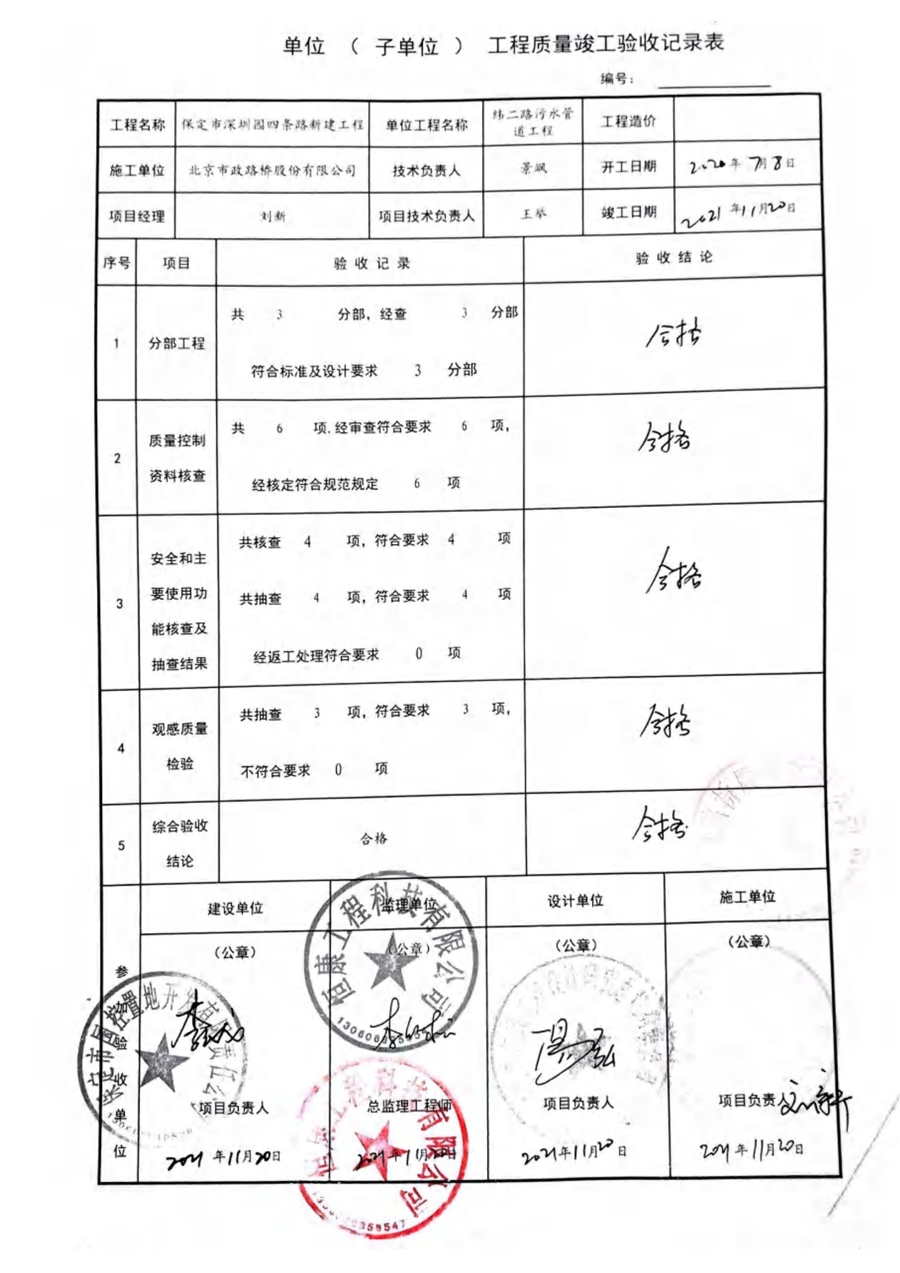 单位 （ 子单位 ） 工程质量竣工验收记录表
编号：
工程名称 保定市深圳园四条路新建工程 单位工程名称 纬二路污水管道工程 工程造价
施工单位 北京市政路桥股份有限公司 技术负责人 景飒 开工日期 2020年7月8日
项目经理 刘新 项目技术负责人 王举 竣工日期 2021年11月20日
序号 项目 验收记录 验收结论
1 分部工程 共 3 分部，经查 3 分部 合格
符合标准及设计要求 3 分部
2 质量控制资料核查 共 6 项,经审查符合要求 6 项， 合格
经核定符合规范规定 6 项
3 安全和主要使用功能核查及抽查结果 共核查 4 项，符合要求 4 项 合格
共抽查 4 项，符合要求 4 项
经返工处理符合要求 0 项
4 观感质量检验 共抽查 3 项，符合要求 3 项， 合格
不符合要求 0 项
5 综合验收结论 合格 合格
参验收单位
建设单位 监理单位 设计单位 施工单位
（公章） （公章） （公章） （公章）
恒康工程科技有限公司
项目负责人 总监理工程师 项目负责人 项目负责人
2021年11月20日 2021年11月20日 2021年11月20日 2021年11月20日
工程科技有限公司